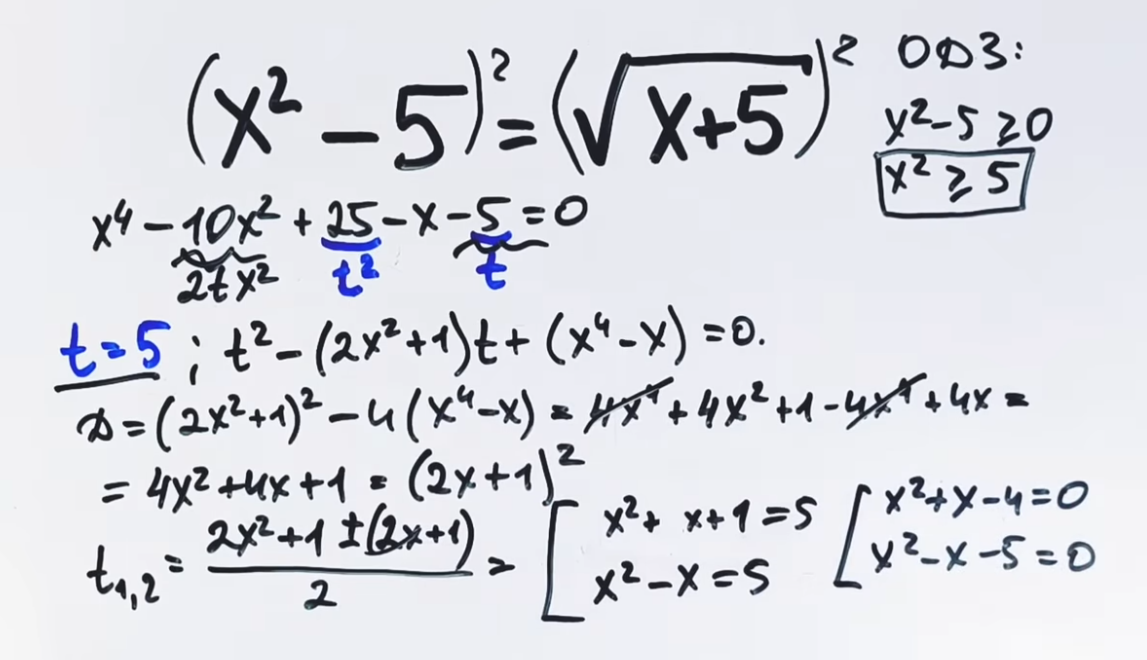 (x² − 5)² = (√(x+5))²
ОДЗ:
x² − 5 ≥ 0
x² ≥ 5
x⁴ − 10x² + 25 − x − 5 = 0
2tx² t² t
t = 5 ; t² − (2x² + 1)t + (x⁴ − x) = 0.
D = (2x² + 1)² − 4(x⁴ − x) = 4x⁴ + 4x² + 1 − 4x⁴ + 4x =
= 4x² + 4x + 1 = (2x + 1)²
t₁,₂ = (2x² + 1 ± (2x + 1)) / 2 = [ x² + x + 1 = 5 [ x² + x − 4 = 0
x² − x = 5 x² − x − 5 = 0